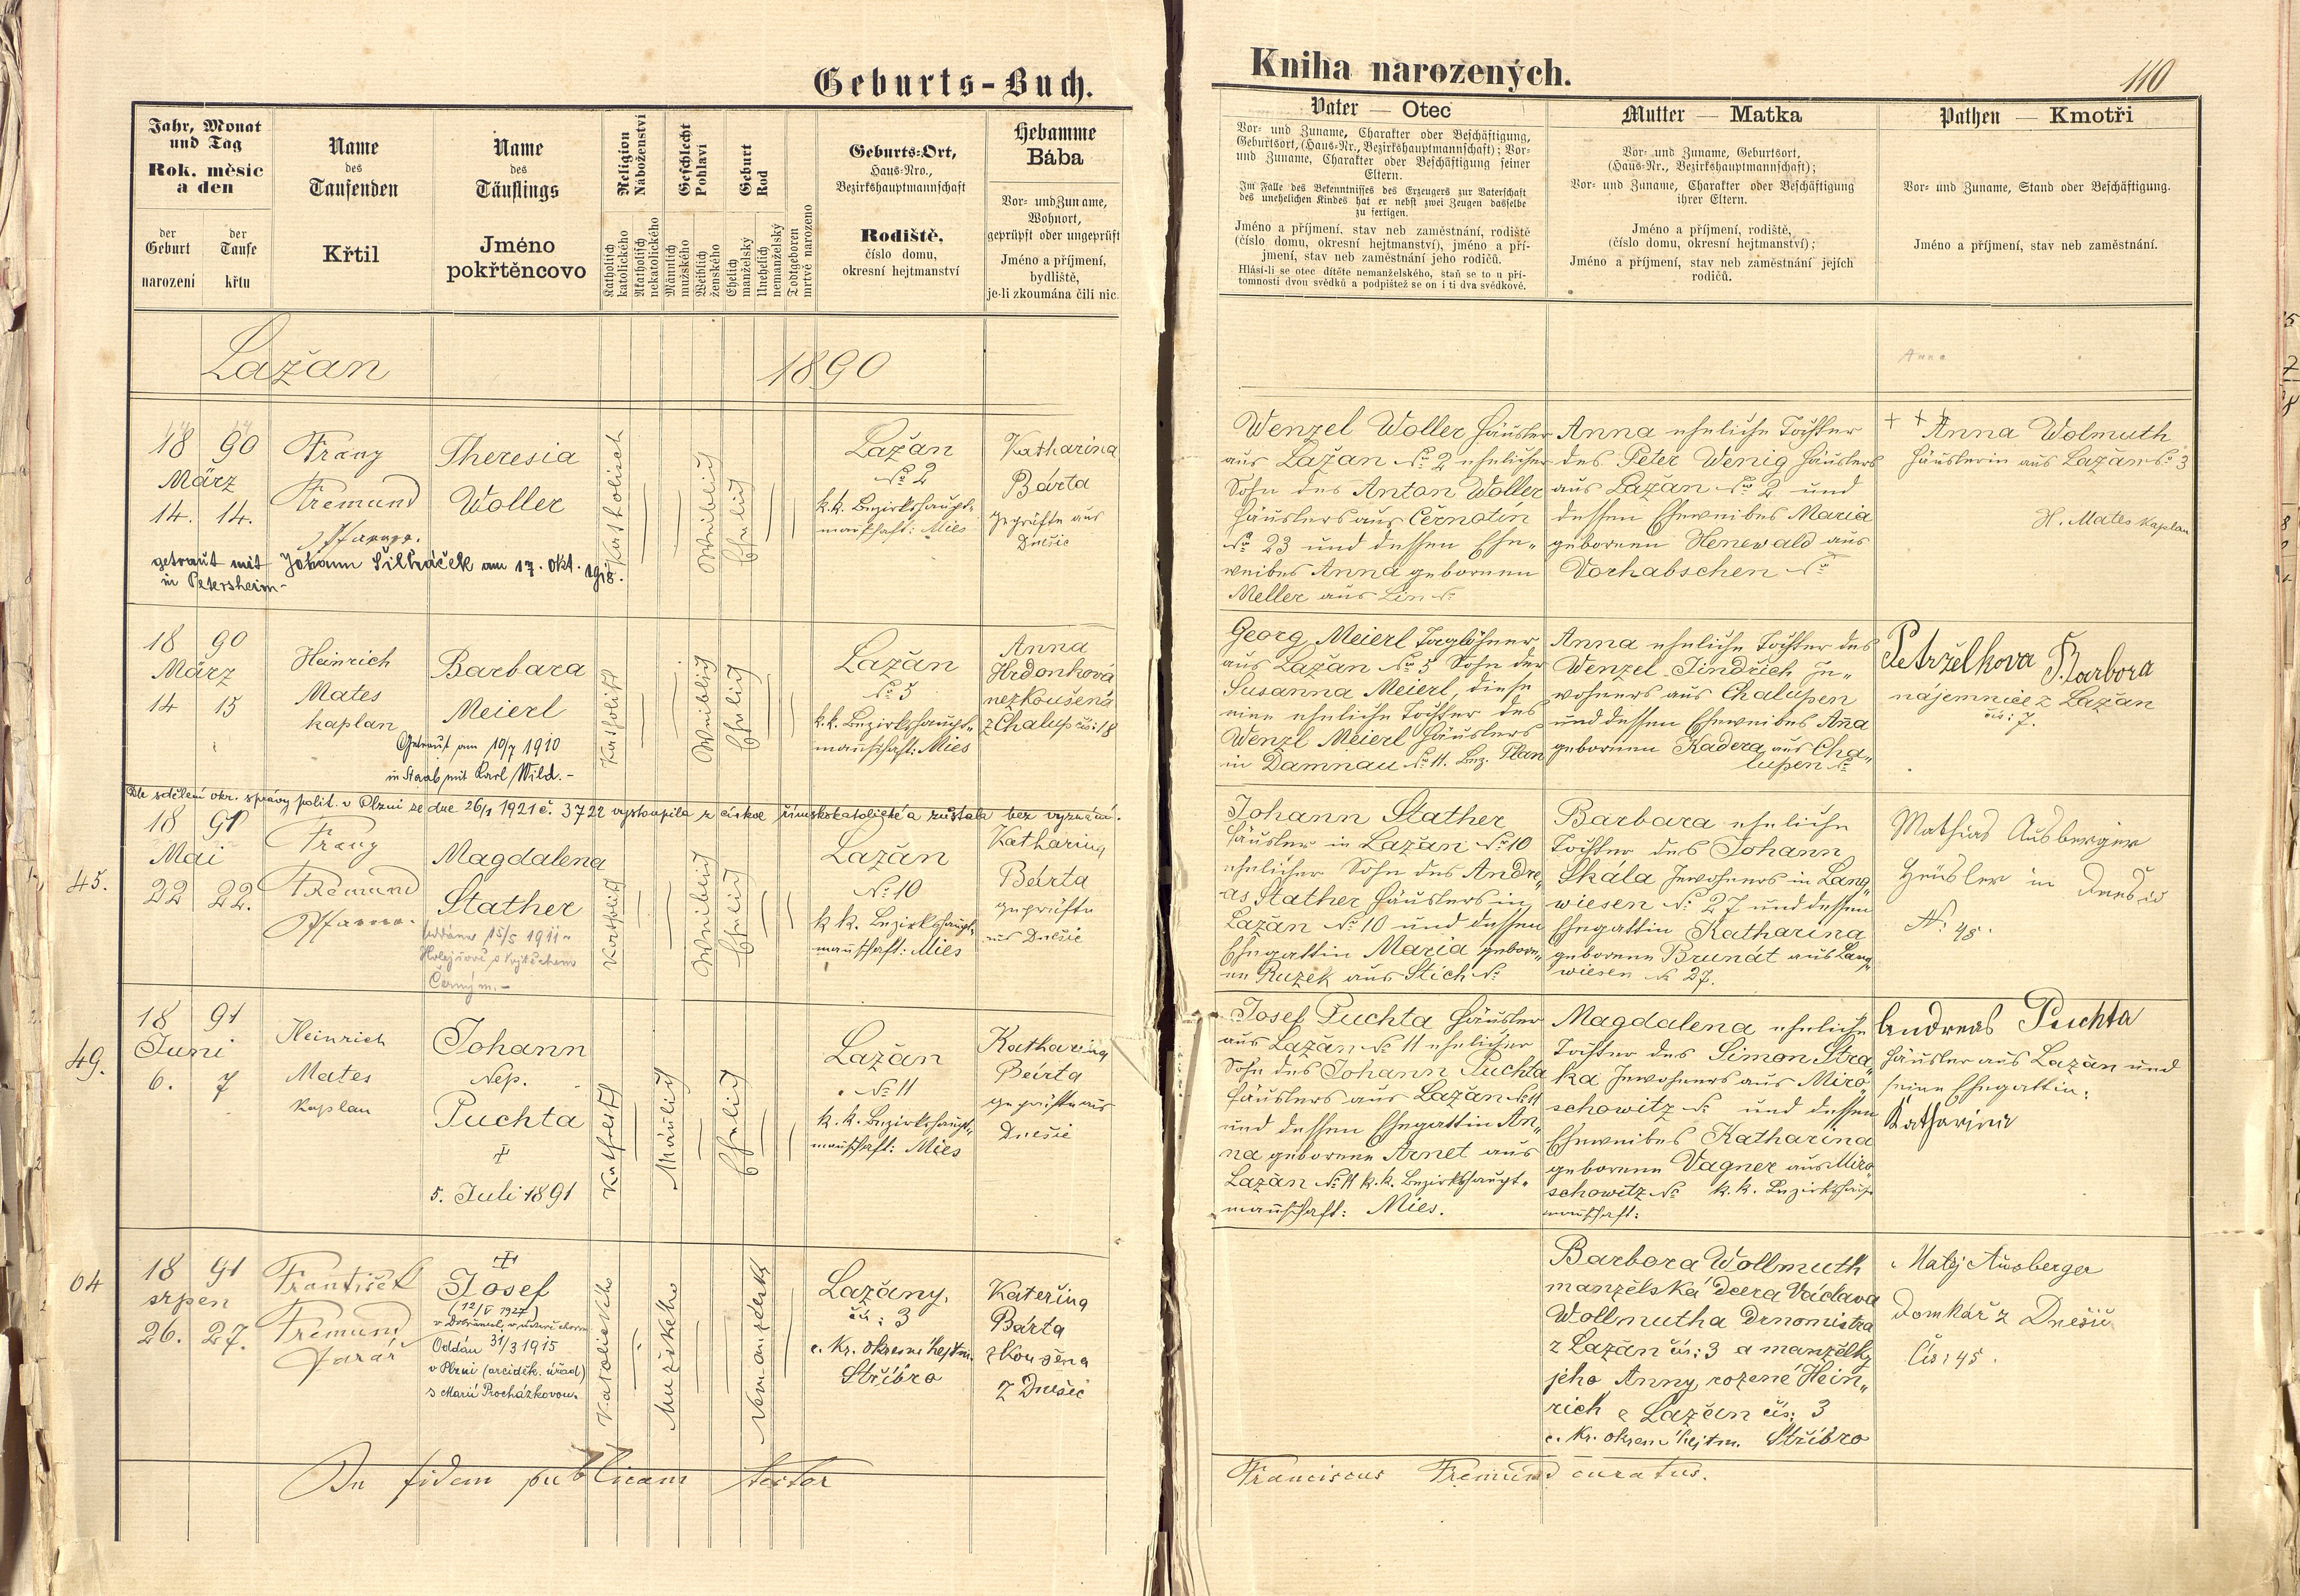 Geburts-Buch.
Jahr, Monat
und Tag
Rok. měsíc
a den
der
Geburt
narození
der
Taufe
křtu
Name
des
Taufenden
Křtil
Name
des
Täuflings
Jméno
pokřtěncovo
Religion
Náboženství
Katholisch
katolického
Akatholisch
nekatolického
Geschlecht
Pohlaví
Männlich
mužského
Weiblich
ženského
Geburt
Rod
Ehelich
manželský
Unehelich
nemanželský
Todtgeboren
mrtvě narozeno
Geburts-Ort,
Haus-Nro.,
Bezirkshauptmannschaft
Rodiště,
číslo domu,
okresní hejtmanství
Hebamme
Bába
Vor- und Zuname,
Wohnort,
geprüpft oder ungeprüft
Jméno a příjmení,
bydliště,
je-li zkoumána čili nic.
Lažan 1890
18 90
März
14. 14.
Franz
Fremund
Pfarrer.
Theresia
Woller
Katholisch
Weiblich
Ehelich
Lažan
No 2
k.k. Bezirkshaupt-
mannschaft: Mies
Katharina
Bárta
geprüfte aus
Dnešic
getraut mit Johann Šilháček am 17. Okt. 1918.
in Petersheim-
18 90
März
14 15
Heinrich
Mates
kaplan
Barbara
Meierl
Getraut am 10/7 1910
in Staab mit Karl Wild.-
Katholisch
Weiblich
Ehelich
Lažan
No 5
k.k. Bezirkshaupt-
mannschaft: Mies
Anna
Hrdonková
nezkoušená
z Chalup čís: 18
Dle sdělení okr. správy polit. v Plzni ze dne 26/1 1921 č. 3722 vystoupila z církve římskokatolické a zůstala bez vyznání.
45.
18 91
Mai
22 22.
Franz
Fremund
Pfarrer.
Magdalena
Stather
oddána 15/5 1911
Holejšově s Vojtěchem
Černým.-
Katholisch
Weiblich
Ehelich
Lažan
No 10
k k. Bezirkshaupt-
mannschaft: Mies
Katharina
Bárta
geprüfte
aus Dnešic
49.
18 91
Juni
6. 7
Heinrich
Mates
Kaplan
Johann
Nep.
Puchta
+
5. Juli 1891
Katholisch
Männlich
Ehelich
Lažan
No 11
k. k. Bezirkshaupt-
mannschaft: Mies
Katharina
Bárta
geprüfte aus
Dnešic
64
18 91
srpen
26. 27.
František
Fremund
farář
Josef
(12/V 1927)
Oddán 31/3 1915
v Plzni (arciděk. úřad)
s Marií Procházkovou.
Katolického
Mužského
Nemanželský
Lažany,
čís: 3
c. kr. okresní hejtm.
Stříbro
Kateřina
Bárta
zkoušená
z Dnešic
In fidem publicam testor
Kniha narozených.
110
Vater — Otec
Vor- und Zuname, Charakter oder Beschäftigung,
Geburtsort, (Haus-Nr., Bezirkshauptmannschaft); Vor-
und Zuname, Charakter oder Beschäftigung seiner
Eltern.
Im Falle des Bekenntnisses des Erzeugers zur Vaterschaft
des unehelichen Kindes hat er nebst zwei Zeugen dasselbe
zu fertigen.
Jméno a příjmení, stav neb zaměstnání, rodiště
(číslo domu, okresní hejtmanství), jméno a pří-
jmení, stav neb zaměstnání jeho rodičů.
Hlásí-li se otec dítěte nemanželského, staň se to u pří-
tomnosti dvou svědků a podpištež se on i ti dva svědkové.
Mutter — Matka
Vor- und Zuname, Geburtsort,
(Haus-Nr., Bezirkshauptmannschaft);
Vor- und Zuname, Charakter oder Beschäftigung
ihrer Eltern.
Jméno a příjmení, rodiště,
(číslo domu, okresní hejtmanství);
Jméno a příjmení, stav neb zaměstnání jejích
rodičů.
Pathen — Kmotři
Vor- und Zuname, Stand oder Beschäftigung.
Jméno a příjmení, stav neb zaměstnání.
Anna
Wenzel Woller Häusler
aus Lažan No 2 ehelicher
Sohn des Anton Woller
Häuslers aus Černotin
No 23 und dessen Ehe-
weibes Anna gebornen
Meller aus Lin No
Anna eheliche Tochter
des Peter Wenig Häuslers
aus Lažan No 2 und
dessen Eheweibes Maria
gebornen Henewald aus
Vorhabschen No
+ + +
Anna Wolmuth
Häuslerin aus Lažan No 3
H. Mates Kaplan
Georg Meierl Taglöhner
aus Lažan No 5 Sohn der
Susanna Meierl, diese
eine eheliche Tochter des
Wenzl Meierl Häuslers
in Damnau No 11. Bez. Plan
Anna eheliche Tochter des
Wenzel Jindřich In-
wohners aus Chalupen
und dessen Eheweibes Aña
gebornen Kadera aus Cha-
lupen No
Petrželkova Barbora
nájemnice z Lažan
čís: 7.
Johann Stather
Häusler in Lažan No 10
ehelicher Sohn des Andre-
as Stather Häuslers in
Lažan No 10 und dessen
Ehegattin Maria gebore-
ne Ruzek aus Stich No
Barbara eheliche
Tochter des Johann
Skála Inwohners in Lang-
wiesen No 27 und dessen
Ehegattin Katharina
geborene Brundt aus Lang-
wiesen No 27.
Mathias Ausberger
Häusler in Dnešic
No: 45.
Josef Puchta Häusler
aus Lažan No 11 ehelicher
Sohn des Johann Puchta
Häuslers aus Lažan No 11
und dessen Ehegattin An-
na geborene Arnet aus
Lažan No 11 k.k. Bezirkshaupt-
mannschaft: Mies.
Magdalena eheliche
Tochter des Simon Stra-
ka Inwohners aus Miro-
schowitz No und dessen
Eheweibes Katharina
geborene Vagner aus Miro-
schowitz No k. k. Bezirkshaupt-
mannschaft:
Andreas Puchta
Häusler aus Lažan und
seine Ehegattin:
Katharina
Barbora Wollmuth
manželská dcera Václava
Wollmutha
z Lažan čís: 3 a manželky
jeho Anny, rozené Hein-
rich z Lažan čís: 3
c. kr. okresní hejtm. Stříbro
Matěj Ausberger
Domkář z Dnešic
Čís: 45.
Franciscus Fremund curatus.